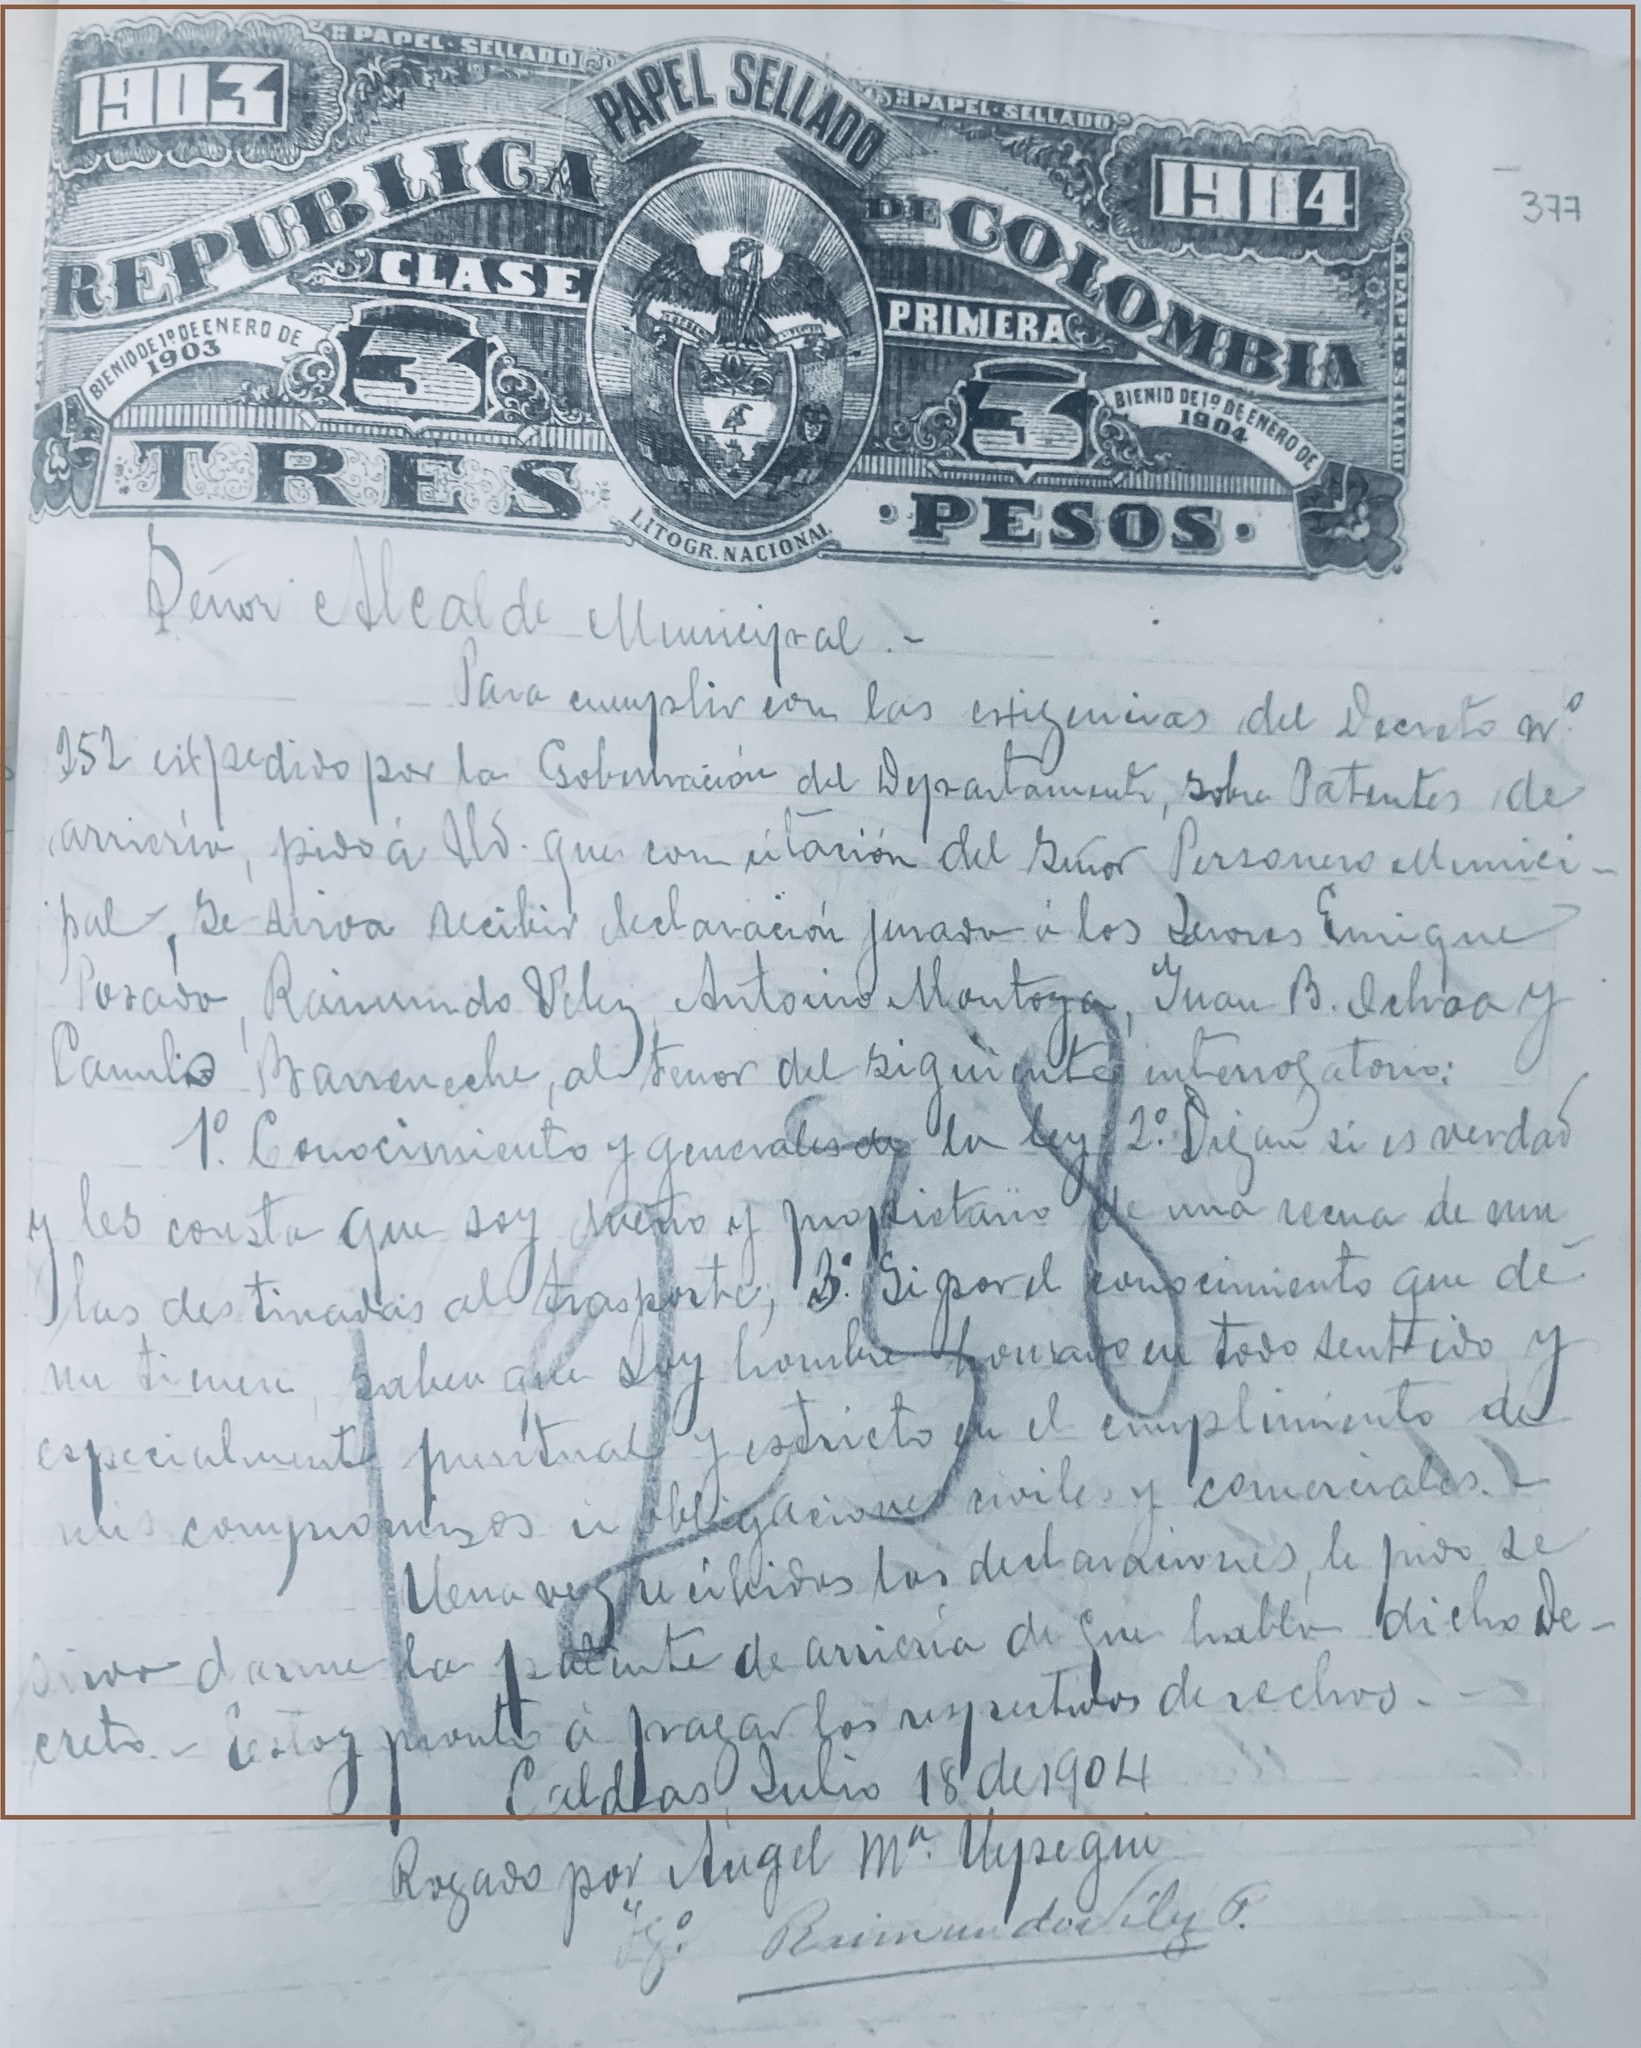 PAPEL SELLADO
PAPEL SELLADO
PAPEL SELLADO
1903
1904
377
REPUBLICA DE COLOMBIA
CLASE PRIMERA
BIENIO DE 1º DE ENERO DE 1903
3
3
BIENIO DE 1º DE ENERO DE 1904
TRES PESOS
LITOGR. NACIONAL
PAPEL SELLADO
Señor Alcalde Municipal.-
Para cumplir con las exigencias del Decreto nº
252 expedido por la Gobernación del Departamento, sobre Patentes de
arriería, pido á Ud. que con citación del Señor Personero Munici-
pal, se sirva recibir declaración jurada á los Señores Enrique
Posada, Raimundo Vélez, Antonio Montoya, Juan B. Ochoa y
Camilo Barreneche, al tenor del siguiente interrogatorio:
1º. Conocimiento y generales de la ley 2º. Digan si es verdad
y les consta que soy dueño y propietario de una recua de mu
las destinadas al trasporte; 3º. Si por el conocimiento que de
mi tienen, saben que soy hombre honrado en todo sentido y
especialmente puntual y estricto en el cumplimiento de
mis compromisos ú obligaciones civiles y comerciales.-
Una vez recibidas las declaraciones, le pido se
sirva darme la patente de arriería de que habla dicho De-
creto.- Estoy pronto á pagar los respectivos derechos.-
Caldas, Julio 18 de 1904
Rogado por Ángel Mª. Uypegui
Raimundo Vélez P.